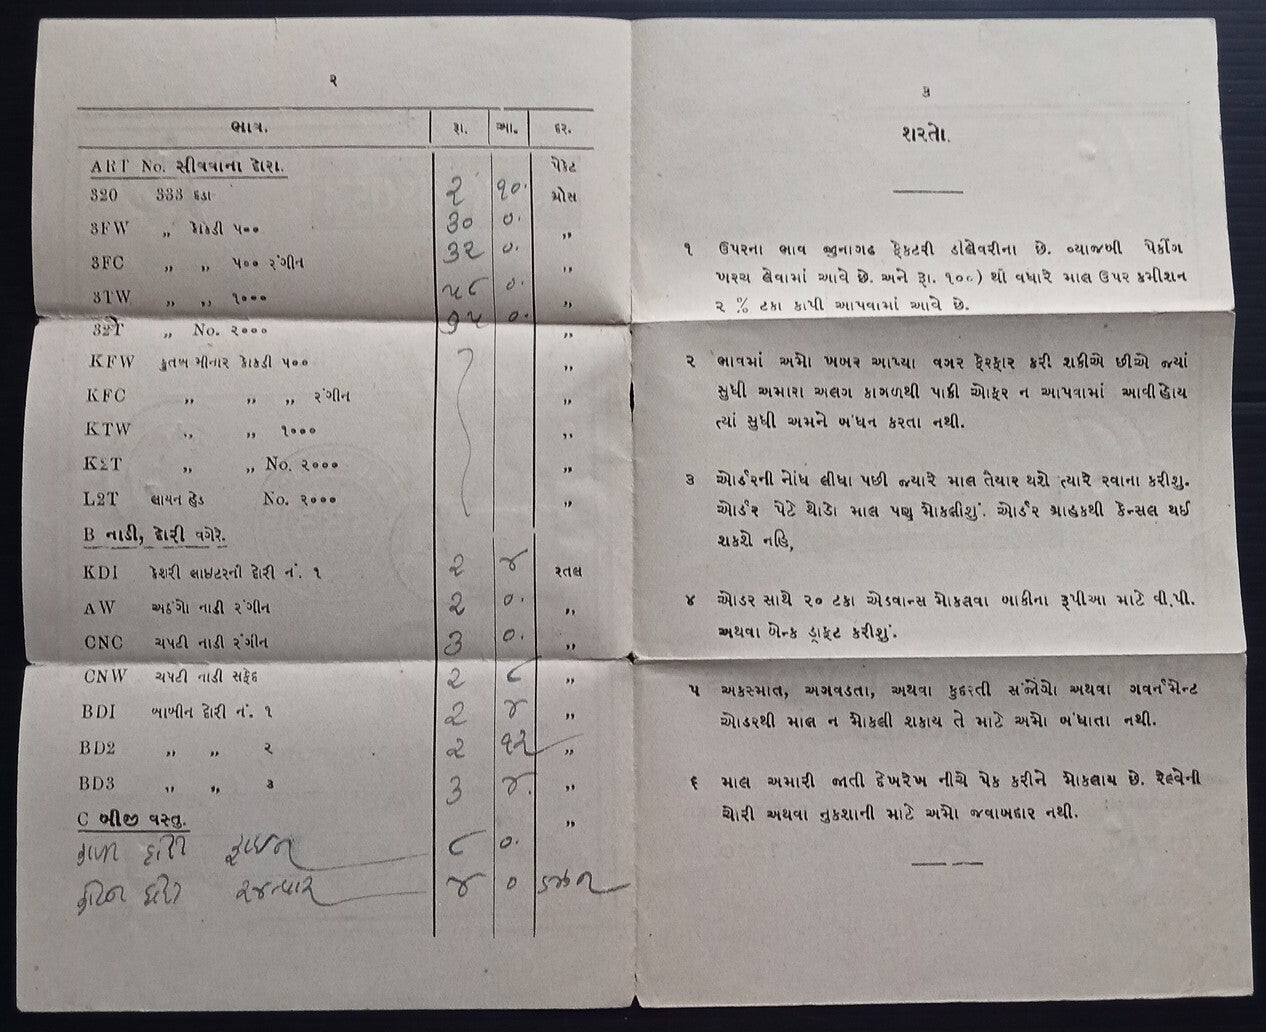 ૨
ભાવ. રૂા. આ. દર.
ART No. સીવવાના દોરા. પેકેટ
320 333 દડા ૨ ૧૦. ગ્રોસ
3FW ,, કોકડી ૫૦૦ ૩૦ ૦. ,,
3FC ,, ,, ૫૦૦ રંગીન ૩૨ ૦. ,,
3TW ,, ,, ૧૦૦૦ ૫૮ ૦. ,,
32T ,, No. ૨૦૦૦ ૭૫ ૦. ,,
KFW કુતબ મીનાર કોકડી ૫૦૦ ,,
KFC ,, ,, ,, રંગીન ,,
KTW ,, ,, ૧૦૦૦ ,,
K2T ,, ,, No. ૨૦૦૦ ,,
L2T લાયન હેડ No. ૨૦૦૦ ,,
B નાડી, દોરી વગેરે.
KDI કેશરી લાઇટરની દોરી નં. ૧ ૨ ૪ રતલ
AW અઠંગો નાડી રંગીન ૨ ૦. ,,
CNC ચપટી નાડી રંગીન ૩ ૦. ,,
CNW ચપટી નાડી સફેદ ૨ ૮ ,,
BDI બાબીન દોરી નં. ૧ ૨ ૪ ,,
BD2 ,, ,, ૨ ૨ ૧૨ ,,
BD3 ,, ,, ૩ ૩ ૪. ,,
C બીજી વસ્તુ. ,,
દોરી ફાઇન ૮ ૦.
દોરી ૪ ૦ ડઝન
૩
શરતો.
૧ ઉપરના ભાવ જુનાગઢ ફેકટરી ડીલેવરીના છે. વ્યાજબી પેકીંગ
ખરચ લેવામાં આવે છે. અને રૂા. ૧૦૦) થી વધારે માલ ઉપર કમીશન
૨ % ટકા કાપી આપવામાં આવે છે.
૨ ભાવમાં અમો ખબર આપ્યા વગર ફેરફાર કરી શકીએ છીએ જ્યાં
સુધી અમારા અલગ કાગળથી પાકી ઓફર ન આપવામાં આવીહોય
ત્યાં સુધી અમને બંધન કરતા નથી.
૩ ઓર્ડરની નોંધ લીધા પછી જ્યારે માલ તૈયાર થશે ત્યારે રવાના કરીશુ.
ઓર્ડર પેટે થોડો માલ પણ મોકલીશું. ઓર્ડર ગ્રાહકથી કેન્સલ થઈ
શકશે નહિ,
૪ ઓડર સાથે ૨૦ ટકા એડવાન્સ મોકલવા બાકીના રૂપીઆ માટે વી.પી.
અથવા બેન્ક ડ્રાફટ કરીશું.
૫ અકસ્માત, અગવડતા, અથવા કુદરતી સંજોગો અથવા ગવર્નમેન્ટ
ઓડરથી માલ ન મોકલી શકાય તે માટે અમો બંધાતા નથી.
૬ માલ અમારી જાતી દેખરેખ નીચે પેક કરીને મોકલાય છે. રેલ્વેની
ચોરી અથવા નુકશાની માટે અમો જવાબદાર નથી.